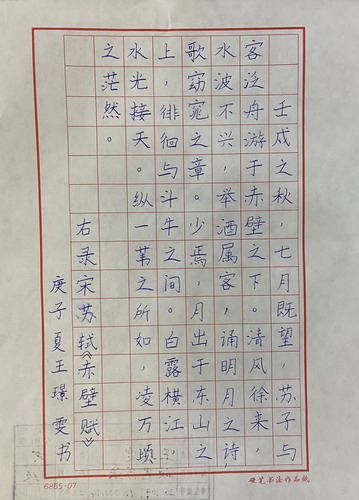 壬戌之秋，七月既望，苏子与
客泛舟游于赤壁之下。清风徐来，
水波不兴，举酒属客，诵明月之诗，
歌窈窕之章。少焉，月出于东山之
上，徘徊与斗牛之间。白露横江，
水光接天。纵一苇之所如，凌万顷
之茫然。
右录宋苏轼《赤壁赋》
庚子夏王璟雯书
6865-07
硬笔书法作品纸